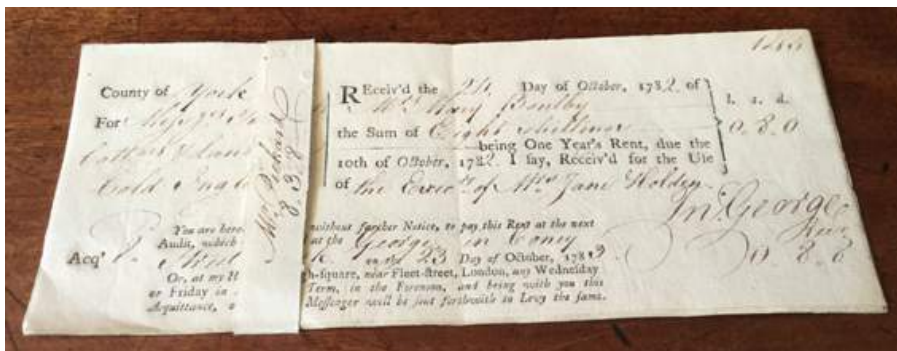 County of York
For
Cottag
Cold Ingl
Acq.
Mr. Pickard
8.3.8
REceiv'd the 24 Day of October, 1782 of
Mrs Mary Bentley
the Sum of Eight shillings
being One Year's Rent, due the
10th of October, 1782. I say, Receiv'd for the Use
of the Execrs of Mrs Jane Holden
l. s. d.
0. 8. 0
Jno. George
Recr
0. 8. 0
You are here without further Notice, to pay this Rent at the next
Audit, which at the George in Coney
Street k on 23 Day of October, 1783.
Or, at my H gh-square, near Fleet-street, London, any Wednesday
or Friday in Term, in the Forenoon, and bring with you this
Acquittance, o Messenger will be sent forthwith to Levy the same.